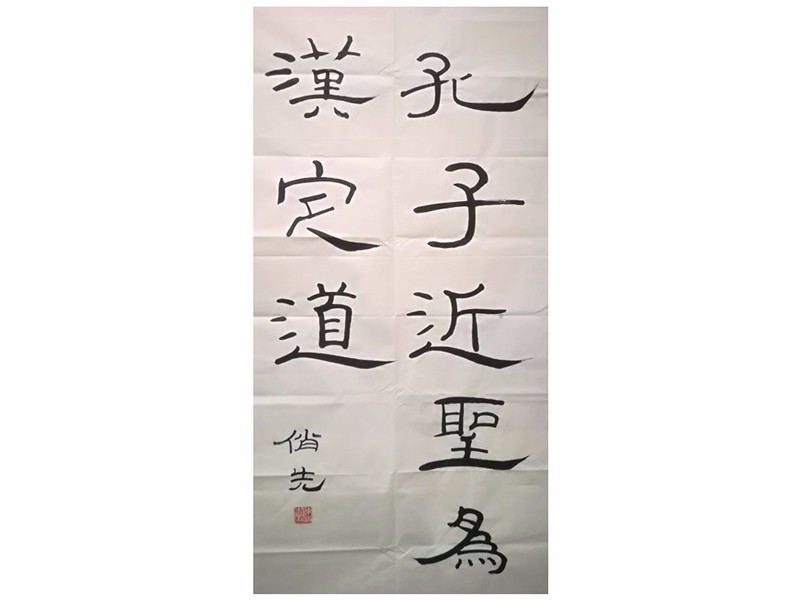 孔子近聖為
漢定道
俏先